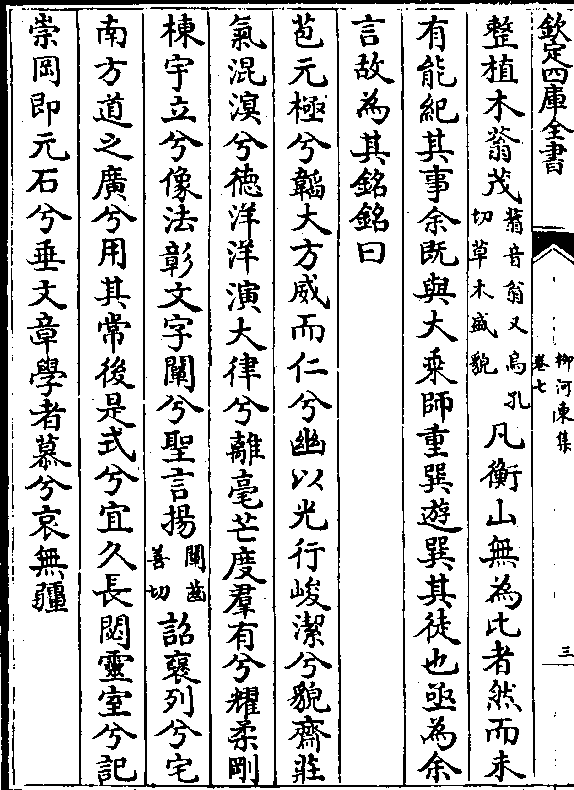 欽定四庫全書
柳河東集
卷七
三
整植木蓊茂蓊音翁又烏孔切草木盛貌凡衡山無為比者然而未
有能紀其事余既與大乘師重巽遊巽其徒也亟為余
言故為其銘銘曰
苞元極兮韜大方威而仁兮幽以光行峻潔兮貌齋莊
氣混溟兮德洋洋演大律兮離毫芒度羣有兮耀柔剛
棟宇立兮像法彰文字闡兮聖言揚闡齒善切詔褒列兮宅
南方道之廣兮用其常後是式兮宜久長閟靈室兮記
崇岡即元石兮垂文章學者慕兮哀無疆